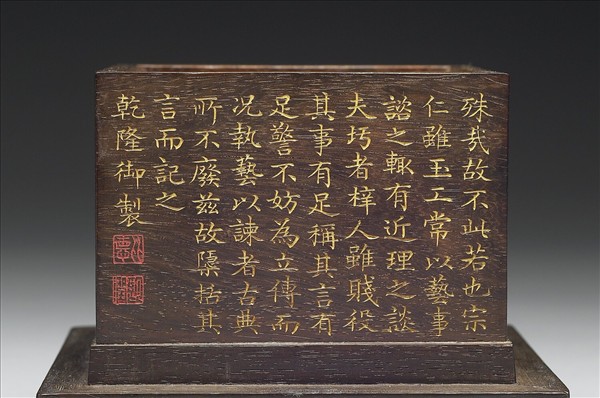 殊哉故不此若也宗
仁雖玉工常以藝事
諮之輙有近理之談
夫圬者梓人雖賤役
其事有足稱其言有
足警不妨為立傳而
況執藝以諫者古典
所不廢茲故檃括其
言而記之
乾隆御製